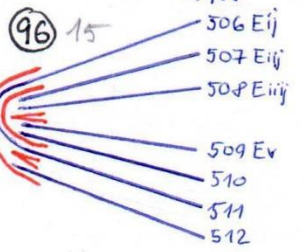 96 15
506 Eij
507 Eiij
508 Eiiij
509 Ev
510
511
512